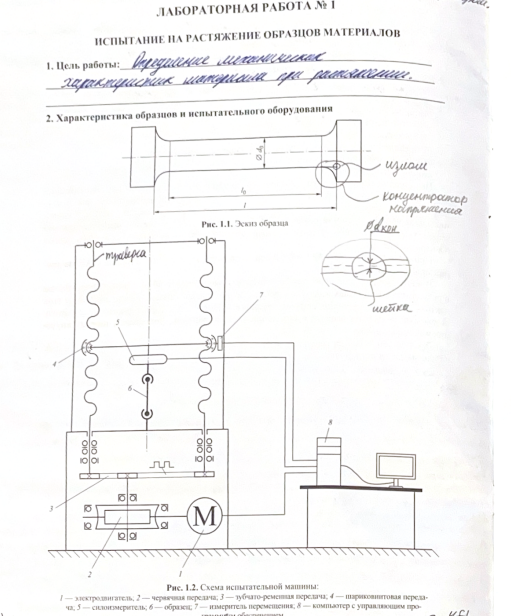 ЛАБОРАТОРНАЯ РАБОТА № 1
ИСПЫТАНИЕ НА РАСТЯЖЕНИЕ ОБРАЗЦОВ МАТЕРИАЛОВ
1. Цель работы: Определение механических
характеристик материала при растяжении.
2. Характеристика образцов и испытательного оборудования
Ø d₀
l₀
l
излом
концентратор
напряжения
Рис. 1.1. Эскиз образца
Ø dкон
шейка
траверса
7
5
4
6
8
3
M
2
1
Рис. 1.2. Схема испытательной машины:
1 — электродвигатель, 2 — червячная передача; 3 — зубчато-ременная передача; 4 — шариковинтовая переда-
ча, 5 — силоизмеритель; 6 — образец; 7 — измеритель перемещения, 8 — компьютер с управляющим про-